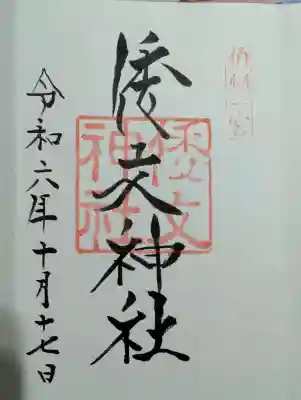 倭文神社
倭文
神社
令和六年十月十七日